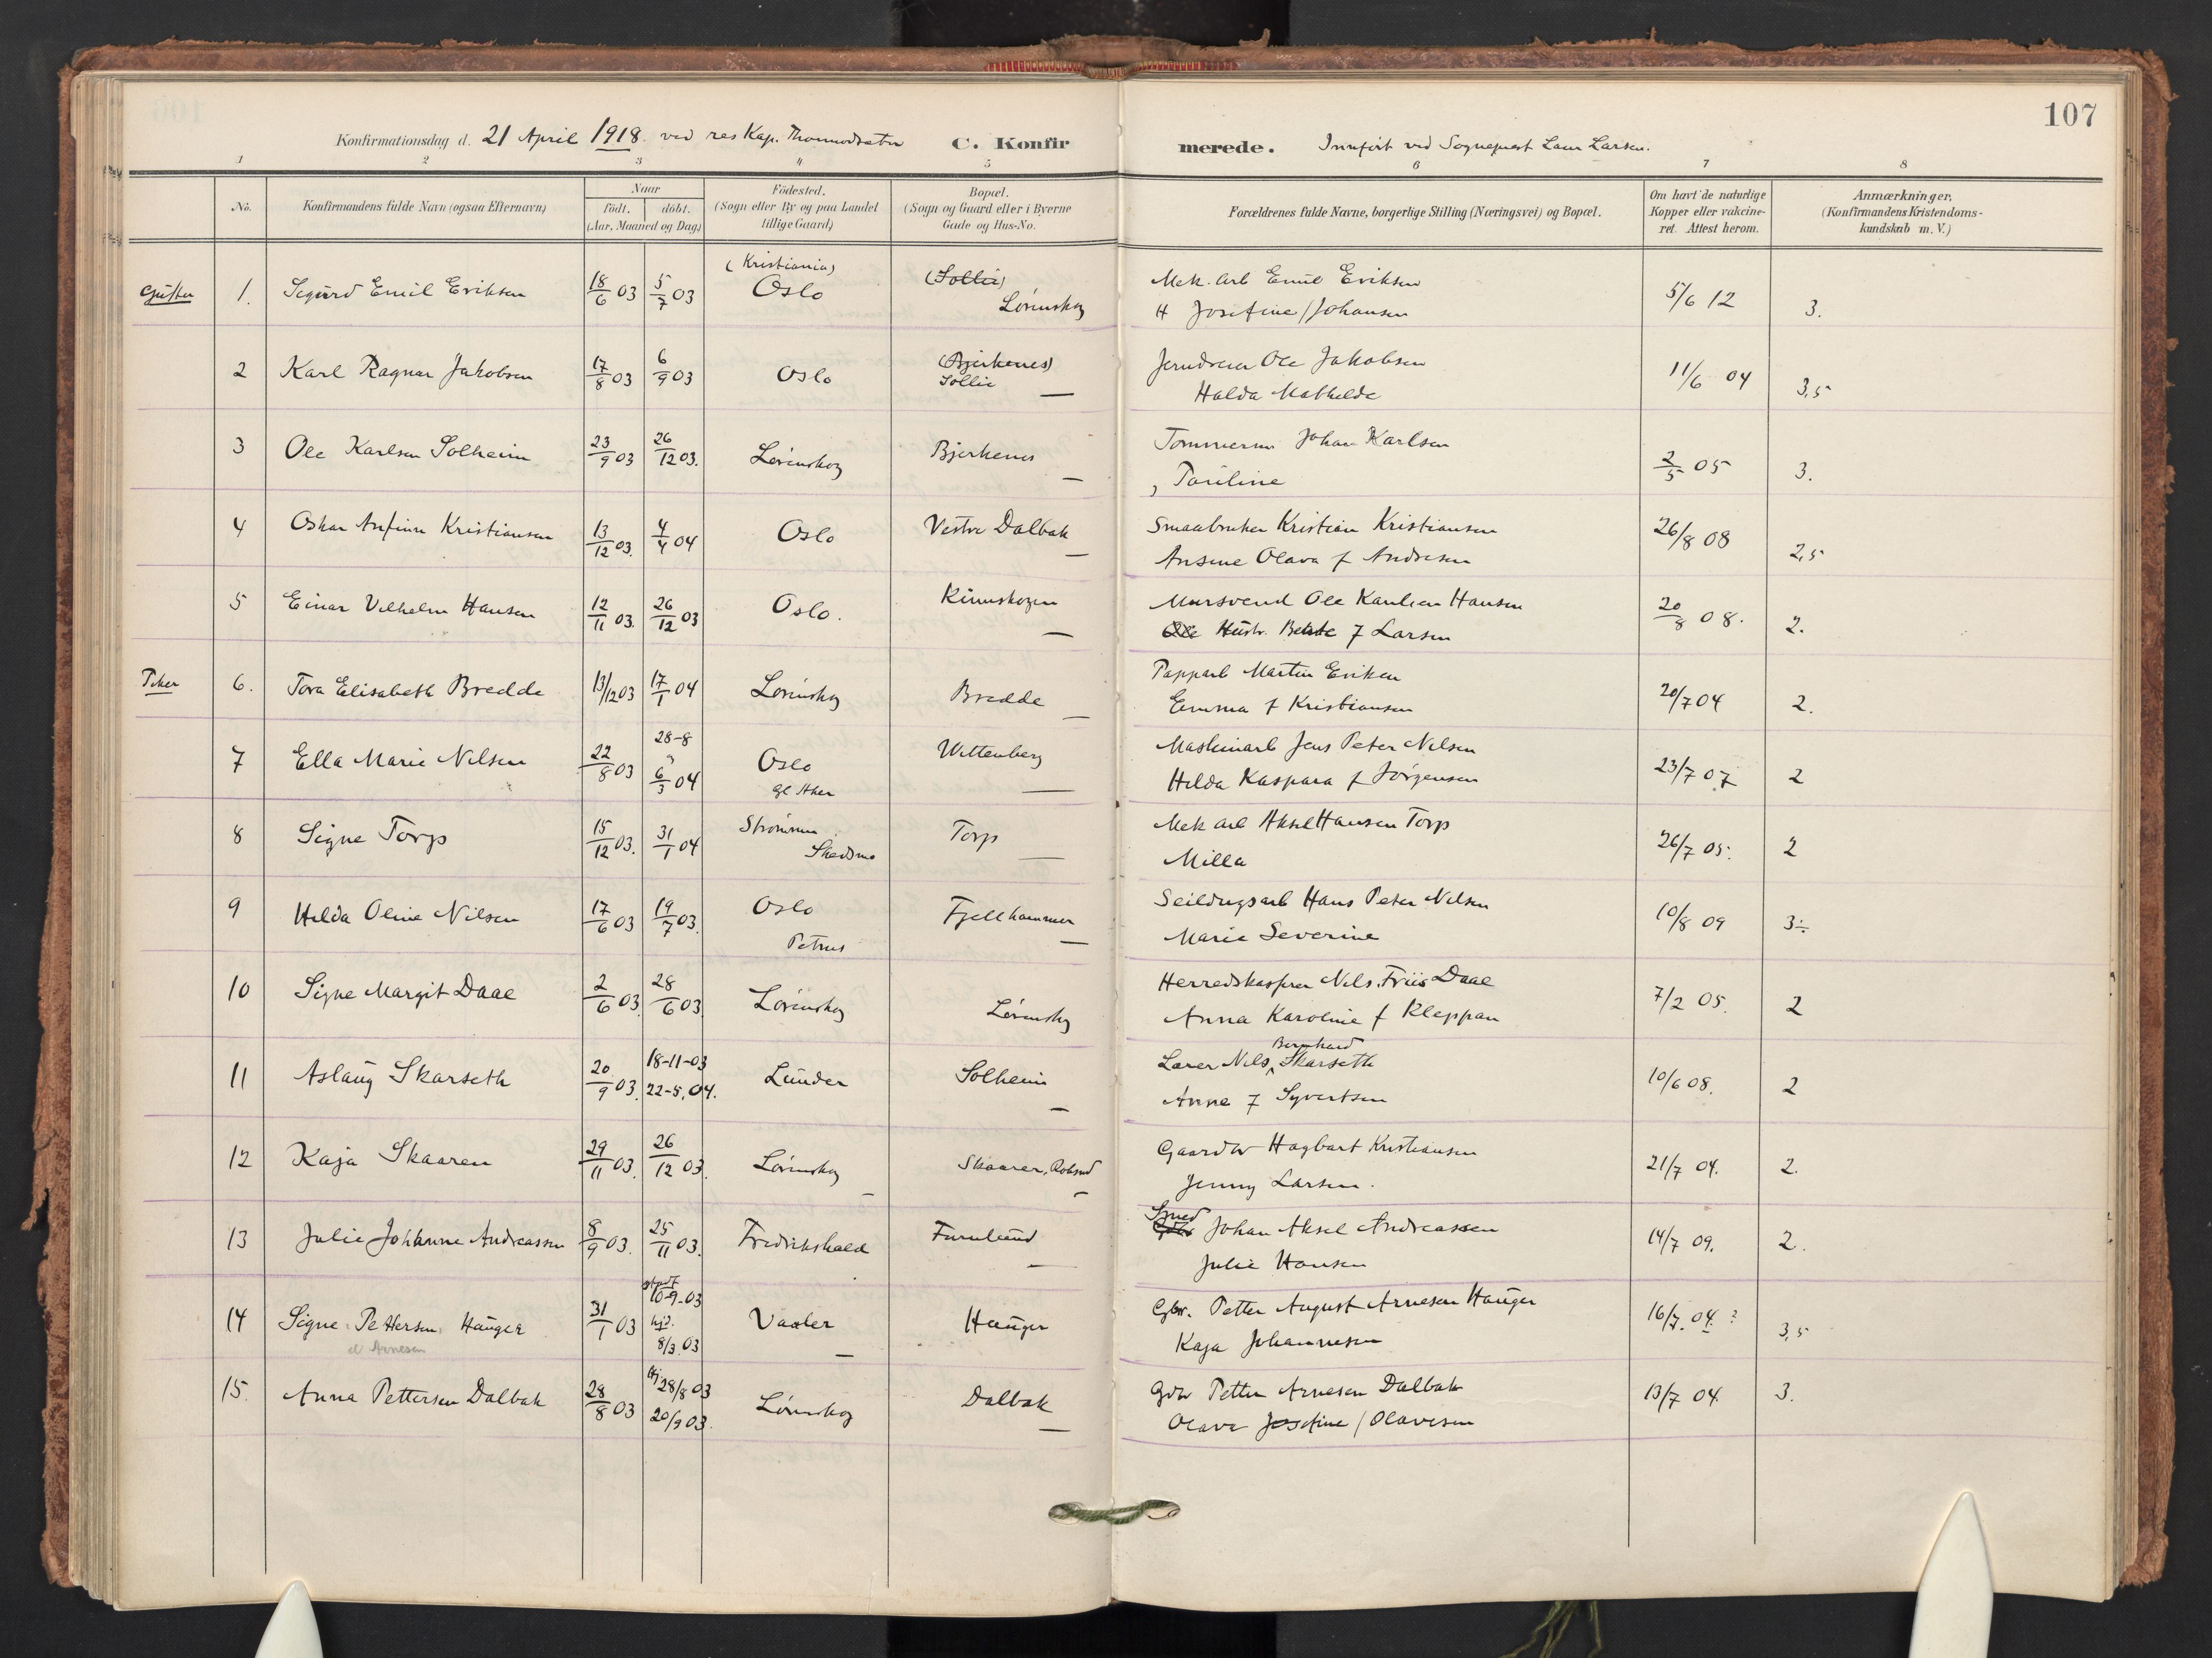 107
Konfirmationsdag d. 21 April 1918. ved res Kap. C. Konfirmerede. Innført ved Sognepræst Laur Larsen.
1 2 3 4 5 6 7 8
No. Konfirmandens fulde Navn (ogsaa Efternavn) Naar födt. döbt. (Aar, Maaned og Dag) Födested. (Sogn eller By og paa Landet tillige Gaard) Bopæl. (Sogn og Gaard eller i Byerne Gade og Hus-No. Forældrenes fulde Navne, borgerlige Stilling (Næringsvei) og Bopæl. Om havt de naturlige Kopper eller vakcineret. Attest herom. Anmærkninger, (Konfirmandens Kristendomskundskab m. V.)
Gutter 1. Sigurd Emil Eriksen 18/6 03 5/7 03 (Kristiania) Oslo (Sollia) Lørenskog Mek. arb Emil Eriksen 5/6 12 3.
H Josefine / Johansen
2 Karl Ragnar Jakobsen 17/8 03 6/9 03 Oslo (Bjerkenes) Sollie — Jerndreier Ole Jakobsen 11/6 04 3,5
Halda Mathilde
3 Ole Karlsen Solheim 23/9 03 26/12 03. Lørenskog Bjerkenes — Tømmerm Johan Karlsen 2/5 05 3.
, Pauline
4 Oskar Anfinn Kristiansen 13/12 03. 4/4 04 Oslo Vestre Dalbak — Smaabruker Kristian Kristiansen 26/8 08 2,5
Ansine Olava f Andresen
5 Einar Vilhelm Hansen 12/11 03. 26/12 03 Oslo. Rūnnskogen — Mursvend Ole Hansen 20/8 08. 2.
Ole Hustr. f Larsen
Piker 6. Tora Elisabeth Bredde 13/12 03 17/1 04 Lørenskog Bredde — Papparb Martin Eriksen 20/7 04 2.
Emma f Kristiansen
7 Ella Marie Nilsen 22/8 03 28-8 og 6/3 04 Oslo gl Aker Wittenberg — Maskinarb Jens Peter Nilsen 23/7 07 2
Hilda Kaspara f Jörgensen
8 Signe Torp 15/12 03. 31/1 04 Strømmen Skedsmo Torp — Mek arb Aksel Hansen Torp 26/7 05. 2
Milla
9 Hilda Oline Nilsen 17/6 03 19/7 03. Oslo Petrus Fjellhammer — Seildugsarb Hans Peter Nilsen 10/8 09 3÷
Marie Severine
10 Signe Margit Daae 2/6 03. 28/6 03. Lørenskog Lørenskog Herredskasserer Nils Friis Daae 7/2 05. 2
Anna Karoline f Kleppan
11 Aslaug Skarseth 20/9 03. 18-11-03 22-5, 04. Lunder Solheim — Lærer Nils Bernhard Skarseth 10/6 08. 2
Anne f Syvertsen
12 Kaja Skaaren 29/11 03. 26/12 03. Lørenskog — Skaarer, Robsrud — Gaardbr Hagbart Kristiansen 21/7 04. 2.
Jenny Larsen.
13 Julie Johanne Andreassen 8/9 03. 25/11 03. Fredrikshald Furulund — Smed Johan Aksel Andreassen 14/7 09. 2.
Julie Hansen
14 Signe Pettersen Hauger 31/1 03 stadf 10-9-03 hjd. 8/3 03 Vaaler — Hauger Gbr. Petter August Arnesen Hauger 16/7. 04. ? 3,5
el Arnesen Kaja Johannesen
15. Anna Pettersen Dalbak 28/8 03 hj 28/8 03 20/9 03. Lørenskog Dalbak — Gbr Petter Arnesen Dalbak 13/7 04. 3.
Olava Josefine / Olavesen